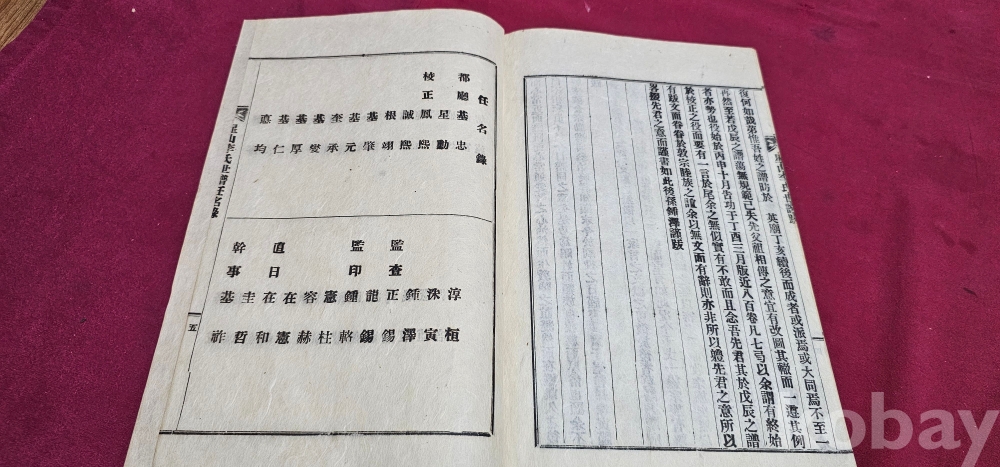 星山李氏世譜跋
復何如哉第惟吾姓之譜昉於 英廟丁亥續後而成者或派焉或大同焉不至一
再然至若戊辰之譜 無規範已失先父祖相傳之意宜有改圖其轍而一遵其例
者亦勢也役始於丙申十月告功于丁酉三月版近八百卷凡七 以余謂有終始
於校正之役而要有一言於尾余之無似實有不敢而且念吾先君其於戊辰之譜
有跋文而眷眷於敦宗陸族之誼余以無文而有辭則亦非所以軆先君之意所以
畧掇先君之意而謹書如此後孫鍾澤謹跋
任名錄
都廳基忠
星勳
校正鳳熙
誠熙
根翊
基肇
基元
奎承
基燮
基厚
基仁
憙均
淳桓
洙寅
鍾澤
監查正錫
龍錫
監印鍾輅
憲柱
容赫
直日在憲
在和
幹事圭哲
基祚
星山李氏世譜任名錄
五
obay